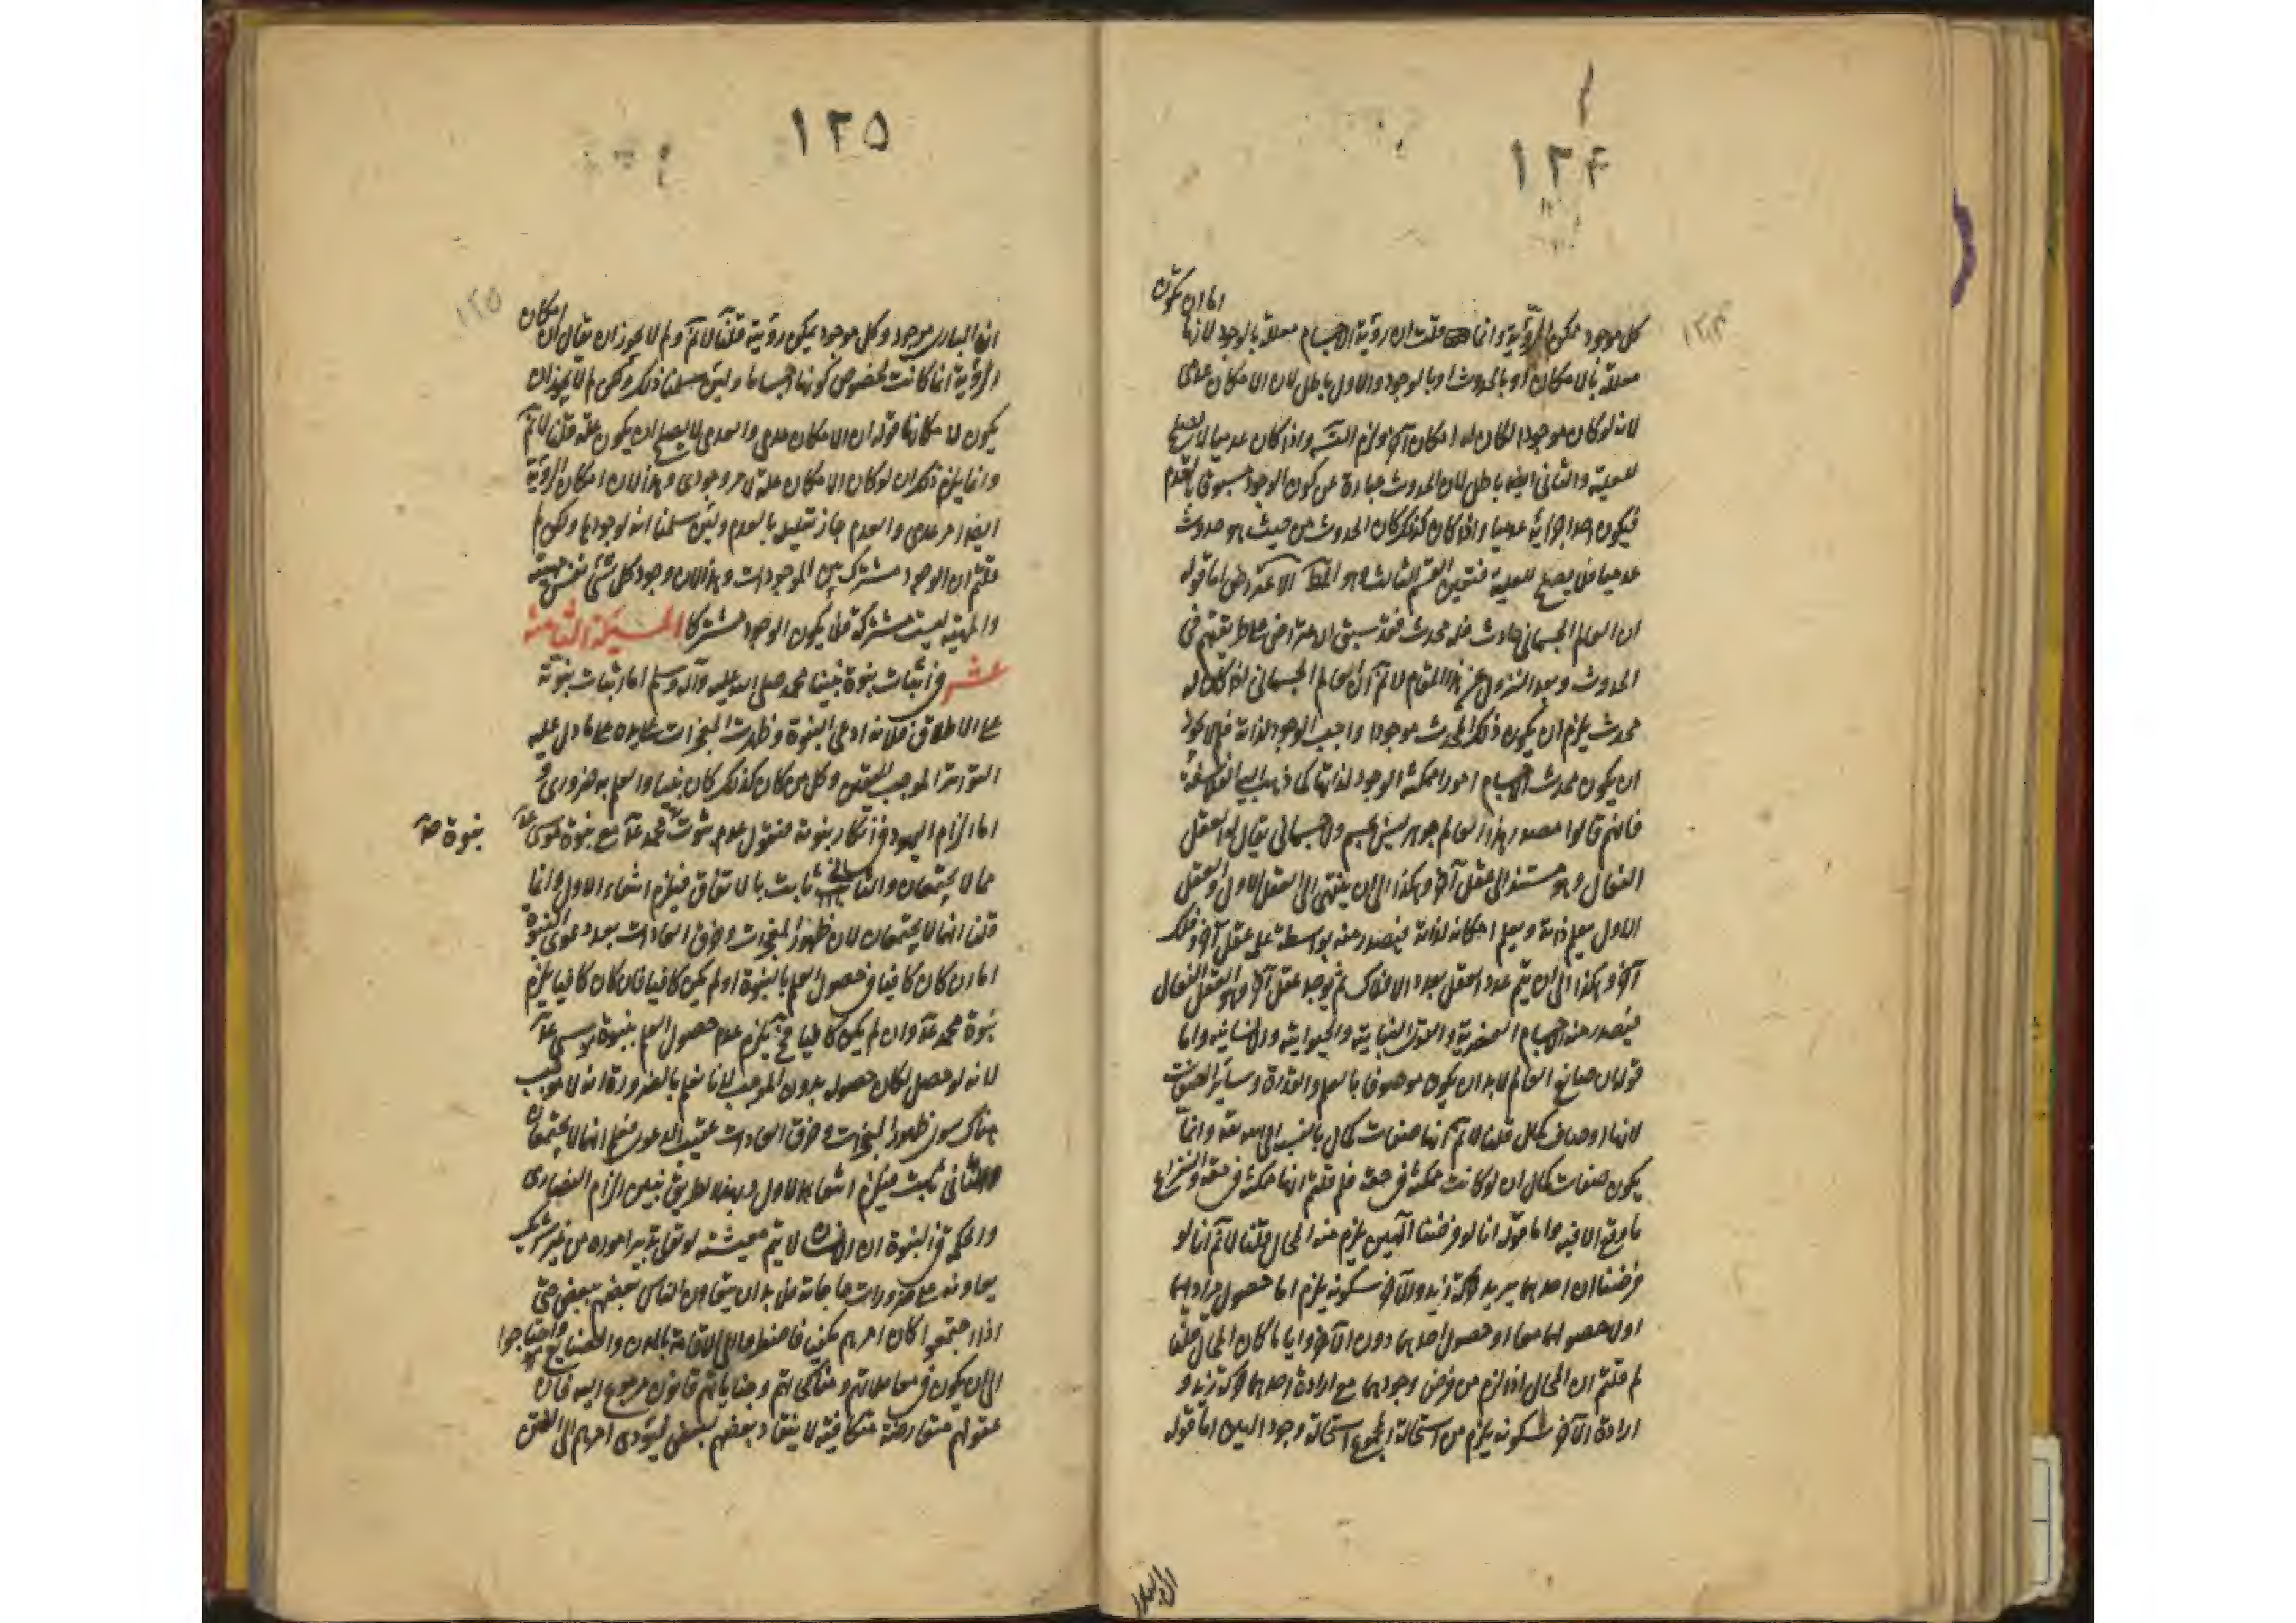 ١٢۴
اما ان يكون
كل موجود ممكن الرؤية وانما قلت ان رؤية الاجسام معللة بالوجود لانها
معللة بالامكان او بالحدوث او بالوجود والاول باطل لان الامكان عدمى
لانه لو كان موجودا لكان له امكان آخر ولزم التسه واذا كان عدميا لا يصلح
للعلية والثانى ايضا باطل لان الحدوث عبارة عن كون الوجود مسبوقا بالعدم
فيكون احد اجزائه عدميا واذا كان كذلك كان الحدوث من حيث هو حدوث
عدميا فلا يصلح للعلية فتعين القسم الثالث وهو المط الاعتراض اما قوله
ان العالم الجسمانى حادث فله محدث فقد سبق الاعتراض على طريقتهم فى
الحدوث وبعد النزول عن هذا المقام لا نم ان العالم الجسمانى اذا كان له
محدث يلزم ان يكون ذلك المحدث موجودا واجب الوجود لذاته فلم لا يجوز
ان يكون محدث الاجسام امورا ممكنة الوجود لذاتها كما ذهب اليه الفلاسفة
فانهم قالوا مصدر هذا العالم جوهر ليس بجسم ولا جسمانى يقال له العقل
الفعال وهو مستند الى عقل آخر وهكذا الى ان ينتهى الى العقل الاول والعقل
الاول يعلم ذاته ويعلم امكانه لذاته فيصدر منه بواسطة علمه عقل آخر وفلك
آخر وهكذا الى ان يتم عدد العقل بعدد الافلاك ثم يوجد عقل آخر وهو العقل الفعال
فيصدر منه الاجسام العنصرية والقوى النباتية والحيوانية والانسانية واما
قوله ان صانع العالم لا بد ان يكون موصوفا بالعلم والقدرة وسائر الصفات
لانها اوصاف كمال قلنا لا نم انها صفات كمال بالنسبة الى الله تعه وانما
يكون صفات كمال ان لو كانت ممكنة فى حقه فلم قلتم انها ممكنة فى حقه والنزاع
ما وقع الا فيه واما قوله انا لو فرضنا آلهين يلزم منه المحال قلنا لا نم انا لو
فرضنا ان احدهما يريد حركة زيد والآخر سكونه يلزم اما حصول مراديهما
اولا حصولهما معا او حصول احدهما دون الآخر وايا ما كان المحال قلنا
لم قلتم ان المحال اذا لزم من فرض وجودهما مع ارادة احدهما حركة زيد و
ارادة الآخر سكونه يلزم من استحالة المجموع استحالة وجود الهين اما قوله
ان البارى
١٢۵
ان البارى موجود وكل موجود يمكن رؤيته قلنا لا نم ولم لا يجوز ان يقال ان امكان
الرؤية انما كانت لخصوص كونها اجساما ولئن سلمنا ذلك ولكن لم لا يجوز ان
يكون لامكانها قوله ان الامكان عدمى والعدمى لا يصلح ان يكون علة قلنا لا نم
وانما يلزم ذلك ان لو كان الامكان علة لامر وجودى وهذا لان امكان الرؤية
ايضا امر عدمى والعدم جاز تعليله بالعدم ولئن سلمنا انه لوجودها ولكن لم
قلتم ان الوجود مشترك بين الموجودات وهذا لان وجود كل شئ نفس مهيته
والمهية ليست مشتركة فلا يكون الوجود مشتركا المسئلة الثامنة
عشر فى اثبات نبوة نبينا محمد صلى الله عليه وآله وسلم اما اثبات نبوته
على الاطلاق فلانه ادعى النبوة وظهرت المعجزات على يده على ما دل عليه
التواتر الموجب لليقين وكل من كان كذلك كان نبيا والعلم به ضرورى و
اما الزام اليهود فى انكار نبوته فنقول عدم ثبوت محمد عم مع نبوة موسى عم
نبوة صح
مما لا يجتمعان والثانى ثابت بالاتفاق فيلزم انتفاء الاول وانما
قلنا انهما لا يجتمعان لان ظهور المعجزات وخرق العادات بعد دعوى النبوة
اما ان كان كافيا فى حصول العلم بالنبوة او لم يكن كافيا فان كان كافيا يلزم
نبوة محمد عم وان لم يكن كافيا فح يلزم عدم حصول العلم بنبوة موسى عم
لانه لو حصل لكان حصوله بدون الموجب لانا نعلم بالضرورة انه لا موجب
هناك سوى ظهور المعجزات وخرق العادات عقيب الدعوى فعلم انهما لا يجتمعان
والثانى ثابت فيلزم انتفاء الاول وبهذا الطريق نبين الزام النصارى
والحكمة فى النبوة ان الانسان لا يتم معيشته لو تولى تدبير اموره من غير شريك
يعاونه على ضرورات حاجاته فلا بد ان يتعاون الناس بعضهم ببعض حتى
اذا اجتمعوا كان امرهم مكفيا فاضطروا الى الاقامة بالمدن والصنايع واحتاجوا
الى ان يكون فى معاملاتهم ومناكحاتهم وجناياتهم قانون مرجوع اليه فان
عقولهم متعارضة متكافية لا ينقاد بعضهم لبعض ليؤدى امرهم الى
١٢٥